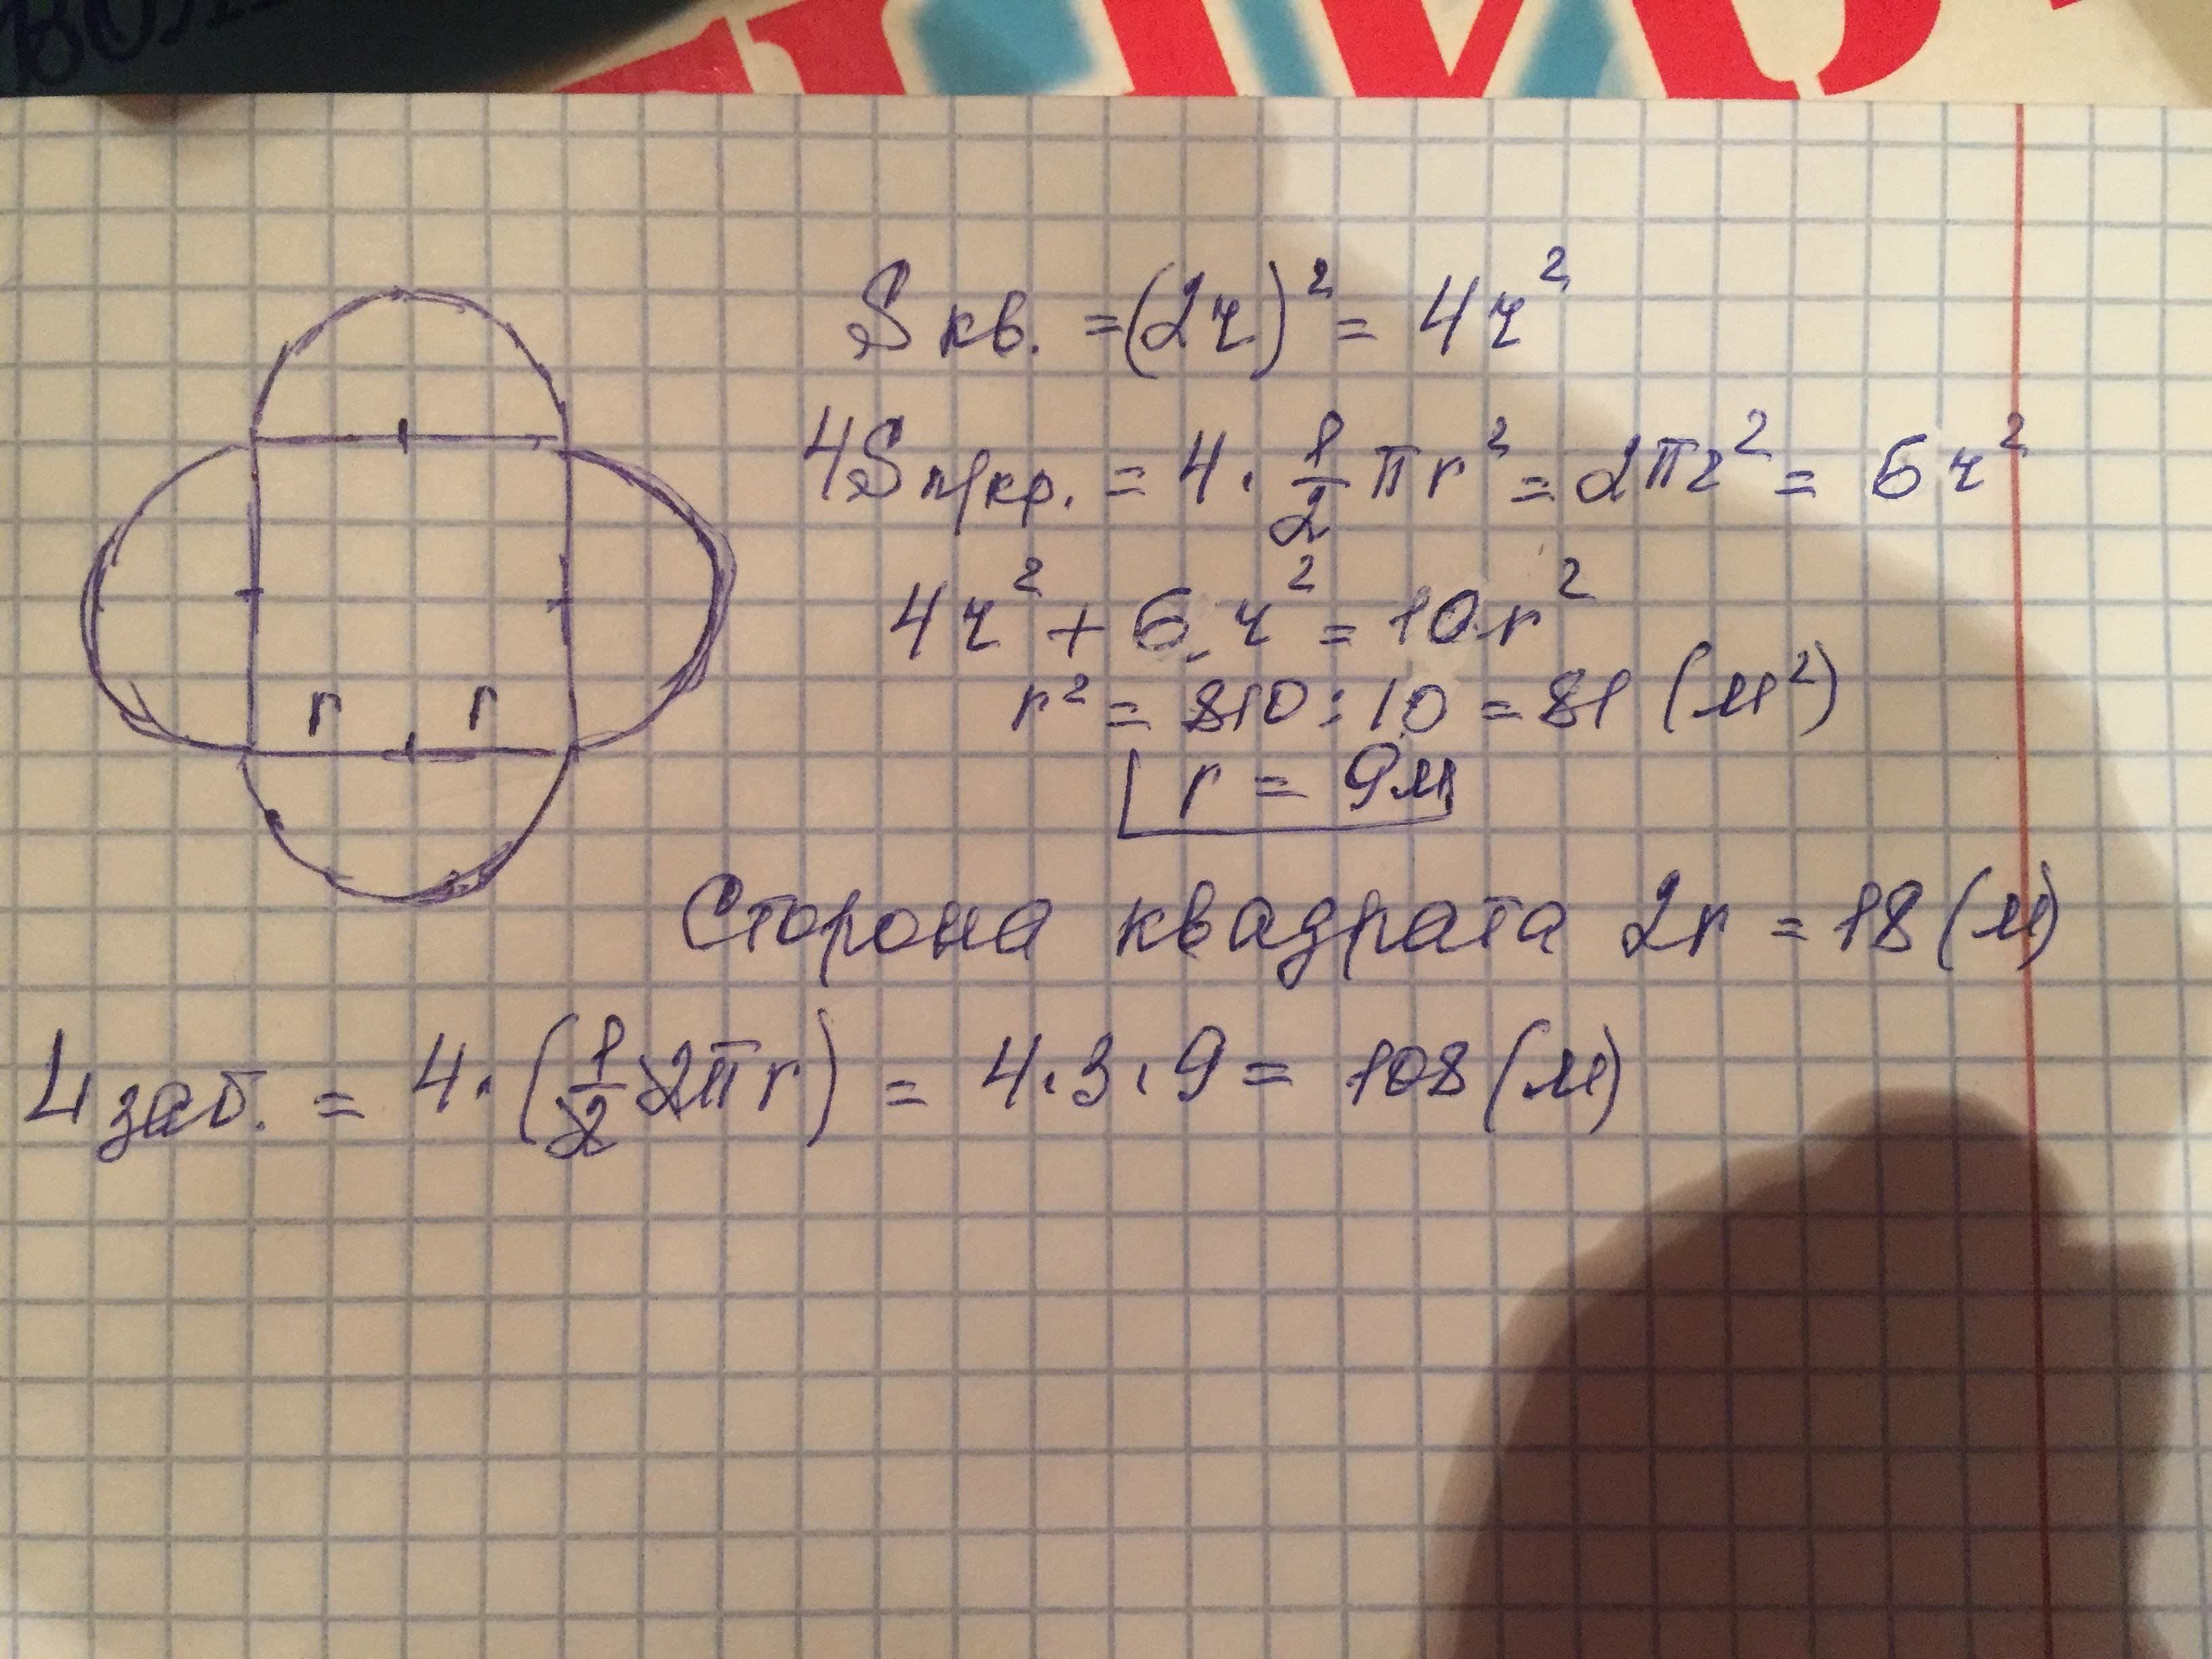 S кв. = (2r)² = 4r²
4S п/кр. = 4 · 1/2 πr² = 2πr² = 6r²
4r² + 6r² = 10r²
r² = 810 : 10 = 81 (м²)
r = 9м
r r
Сторона квадрата 2r = 18 (м)
L заб. = 4 · (1/2 2πr) = 4 · 3 · 9 = 108 (м)